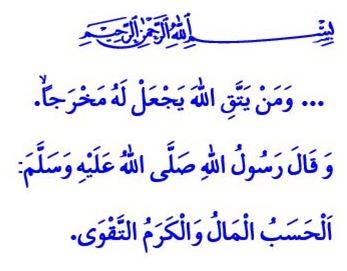 بِسْمِ اللهِ الرَّحْمٰنِ الرَّحِيمِ
... وَمَنْ يَتَّقِ اللهَ يَجْعَلْ لَهُ مَخْرَجاًۙ.
وَ قَالَ رَسُولُ اللهِ صَلَّى اللهُ عَلَيْهِ وَسَلَّمَ:
اَلْحَسَبُ الْمَالُ وَالْكَرَمُ التَّقْوَى.